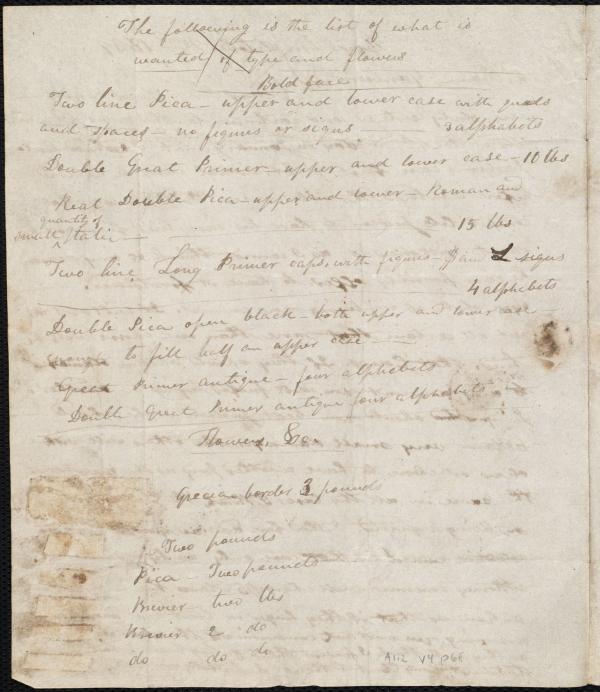 The following is the list of what is
wanted of type and flowers
Bold face
Two line Pica - upper and lower case with quads
and spaces - no figures or signs 3 alphabets
Double Great Primer - upper and lower case - 10 lbs
Real Double Pica - upper and lower - Roman and
small quantity of Italic - 15 lbs
Two line Long Primer caps, with figures - $ and £ signs
4 alphabets
Double Pica open black - both upper and lower case
to fill half an upper case
Great Primer antique - four alphabets
Double Great Primer antique four alphabets
Flowers, &c.
Grecian border 3 pounds
Two pounds
Pica - Two pounds
Brevier two lbs
Brevier 2 do
do do do
A112 V4 p68